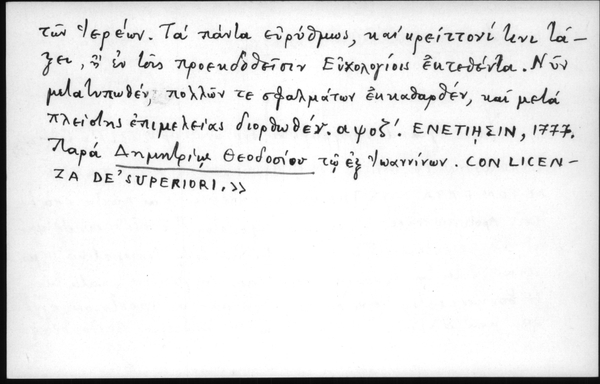 τῶν Ἱερέων. Τὰ πάντα εὐρύθμως, καὶ κρείττονί τινι τά-
ξει, ἢ ἐν τοῖς προεκδοθεῖσιν Εὐχολογίοις ἐκτεθέντα. Νῦν
μετατυπωθέν, πολλῶν τε σφαλμάτων ἐκκαθαρθέν, καὶ μετὰ
πλείστης ἐπιμελείας διορθωθέν. αψοζ΄. ΕΝΕΤΙῌΣΙΝ, 1777.
Παρὰ Δημητρίῳ Θεοδοσίου τῷ ἐξ Ἰωαννίνων. CON LICEN-
ZA DE' SUPERIORI.»